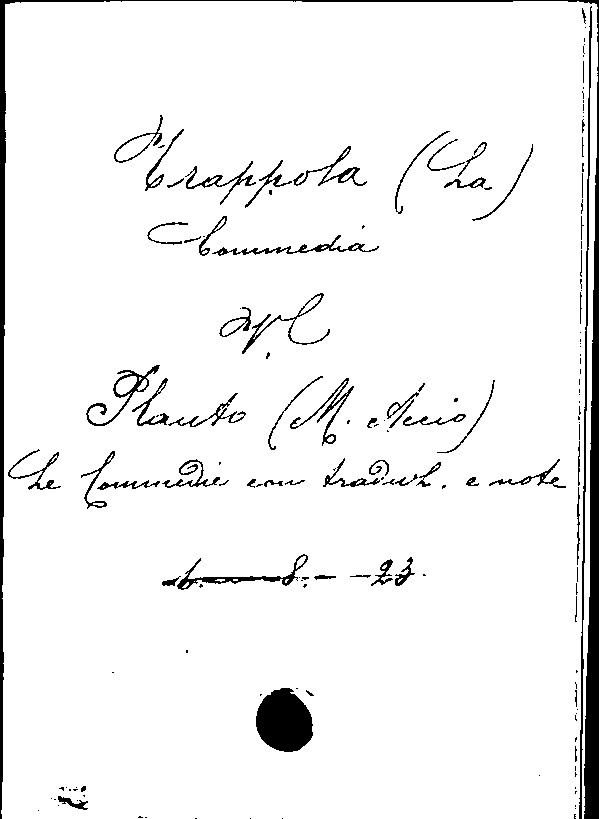 Trappola (La)
Commedia
V.
Plauto (M. Accio)
Le Commedie con traduz. e note
6. — 8. — 23.